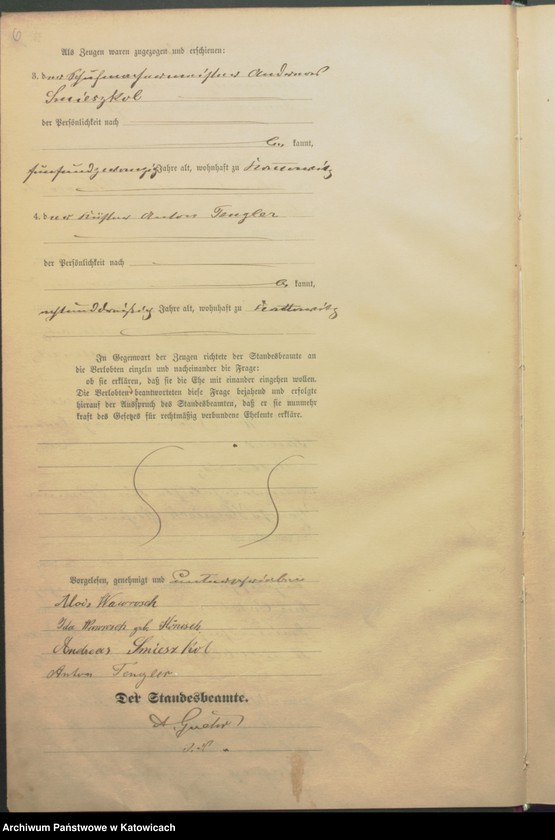 6
Als Zeugen waren zugezogen und erschienen:
3. der Schuhmachermeister Andreas
Smieszkol
der Persönlichkeit nach
be kannt,
fünfundzwanzig Jahre alt, wohnhaft zu Kattowitz
4. der Küster Anton Tenzler
der Persönlichkeit nach
be kannt,
achtunddreißig Jahre alt, wohnhaft zu Kattowitz
In Gegenwart der Zeugen richtete der Standesbeamte an
die Verlobten einzeln und nacheinander die Frage:
ob sie erklären, daß sie die Ehe mit einander eingehen wollen.
Die Verlobten beantworteten diese Frage bejahend und erfolgte
hierauf der Ausspruch des Standesbeamten, daß er sie nunmehr
kraft des Gesetzes für rechtmäßig verbundene Eheleute erkläre.
Vorgelesen, genehmigt und unterschrieben
Alois Wawrosch
Ida Wawrosch geb.
Andreas Smieszkol
Anton Tenzler
Der Standesbeamte.
Archiwum Państwowe w Katowicach